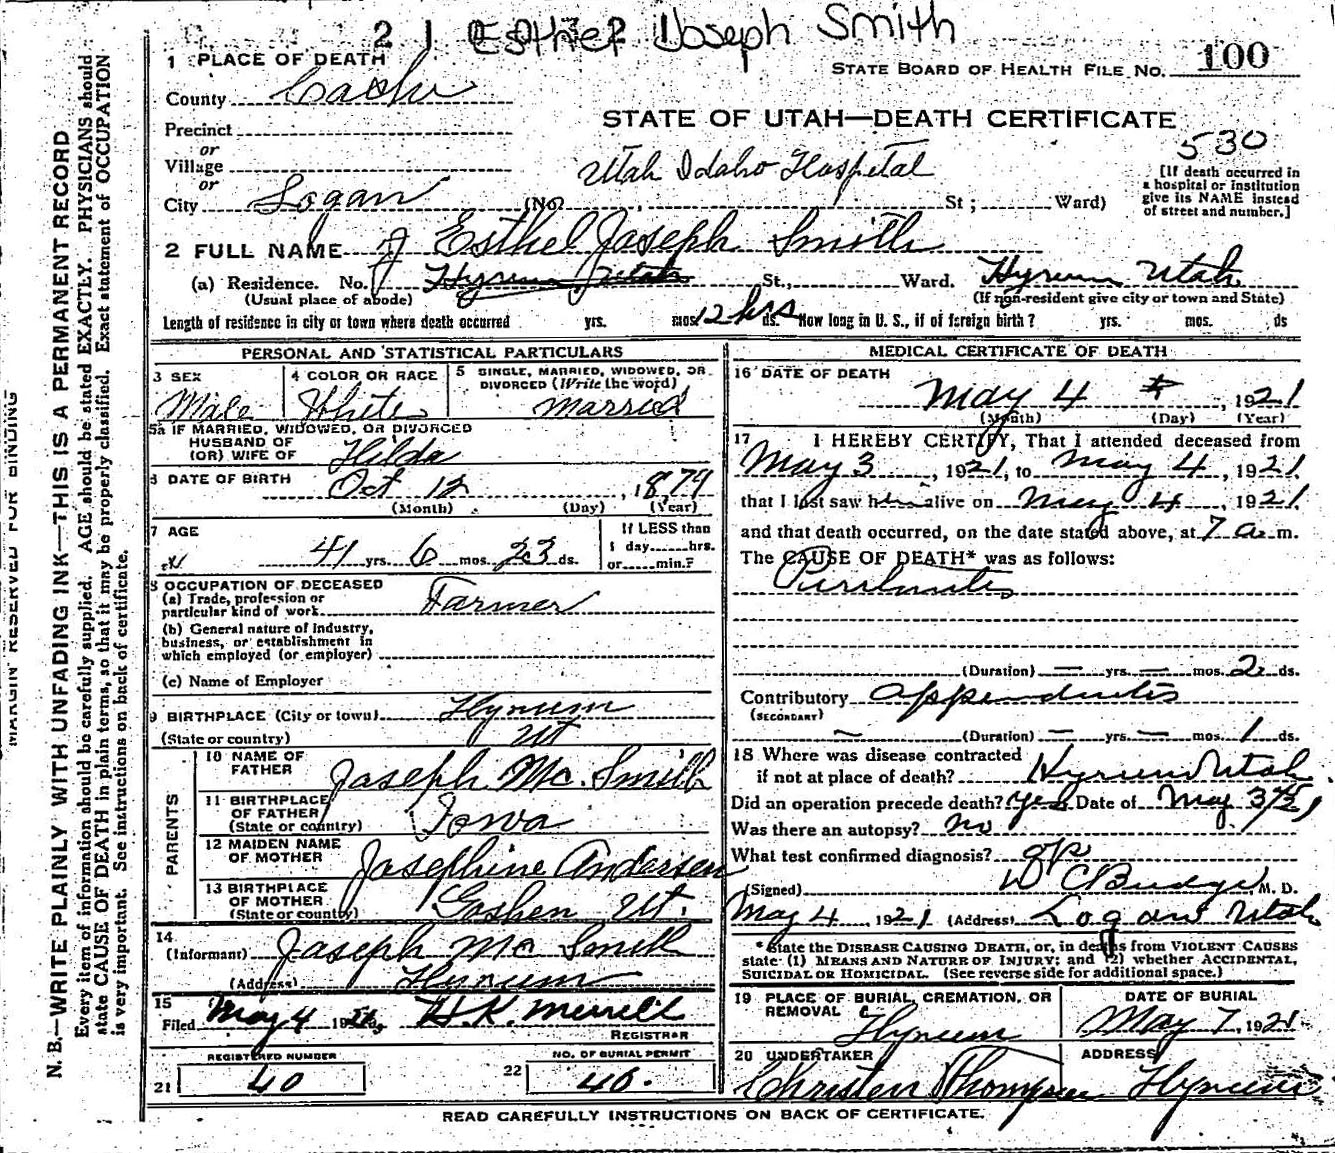 2 1 Esther Joseph Smith
1 PLACE OF DEATH
STATE BOARD OF HEALTH FILE NO. 100
County Cache
STATE OF UTAH—DEATH CERTIFICATE
Precinct
530
or
Village
Utah Idaho Hospital
or
[If death occurred in a hospital or institution give its NAME instead of street and number.]
City Logan (No. St; Ward)
2 FULL NAME J Esthel Joseph Smith
(a) Residence. No. Hyrum Utah St., Ward. Hyrum Utah
(Usual place of abode) (If non-resident give city or town and State)
Length of residence in city or town where death occurred yrs. mos. 12 hrs ds. How long in U. S., if of foreign birth? yrs. mos. ds
PERSONAL AND STATISTICAL PARTICULARS
3 SEX
Male
4 COLOR OR RACE
White
5 SINGLE, MARRIED, WIDOWED, OR
DIVORCED (Write the word)
Married
5a IF MARRIED, WIDOWED, OR DIVORCED
HUSBAND OF
(OR) WIFE OF Hilda
6 DATE OF BIRTH Oct 12, 1879
(Month) (Day) (Year)
7 AGE
41 yrs. 6 mos. 23 ds.
If LESS than
1 day hrs.
or min.?
8 OCCUPATION OF DECEASED
(a) Trade, profession or
particular kind of work Farmer
(b) General nature of industry,
business, or establishment in
which employed (or employer)
(c) Name of Employer
9 BIRTHPLACE (City or town) Hyrum
(State or country) Ut
PARENTS
10 NAME OF
FATHER Joseph Mc. Smith
11 BIRTHPLACE
OF FATHER
(State or country) Iowa
12 MAIDEN NAME
OF MOTHER Josephine Andersen
13 BIRTHPLACE
OF MOTHER
(State or country) Goshen Ut.
14
(Informant) Joseph Mc Smith
(Address) Hyrum
15
Filed May 4 1921 H.K. Merrill
REGISTRAR
REGISTERED NUMBER
21 40
NO. OF BURIAL PERMIT
22 46.
MEDICAL CERTIFICATE OF DEATH
16 DATE OF DEATH
May 4, 1921
(Month) (Day) (Year)
17 I HEREBY CERTIFY, That I attended deceased from
May 3, 1921, to May 4, 1921
that I last saw him alive on May 4, 1921
and that death occurred, on the date stated above, at 7 a.m.
The CAUSE OF DEATH* was as follows:
(Duration) — yrs. — mos. 2 ds.
Contributory appendicitis
(SECONDARY)
— (Duration) — yrs. — mos. 1 ds.
18 Where was disease contracted
if not at place of death? Hyrum Utah.
Did an operation precede death? yes Date of May 3
Was there an autopsy? no
What test confirmed diagnosis? op
(Signed) D C Budge M. D.
May 4 1921 (Address) Logan Utah
* State the DISEASE CAUSING DEATH, or, in deaths from VIOLENT CAUSES
state (1) MEANS AND NATURE OF INJURY; and (2) whether ACCIDENTAL,
SUICIDAL OR HOMICIDAL. (See reverse side for additional space.)
19 PLACE OF BURIAL, CREMATION, OR
REMOVAL Hyrum
DATE OF BURIAL
May 7, 1921
20 UNDERTAKER
Christen Thompson
ADDRESS
Hyrum
READ CAREFULLY INSTRUCTIONS ON BACK OF CERTIFICATE.
MARGIN RESERVED FOR BINDING
N. B.—WRITE PLAINLY WITH UNFADING INK—THIS IS A PERMANENT RECORD
Every item of information should be carefully supplied. AGE should be stated EXACTLY. PHYSICIANS should
state CAUSE OF DEATH in plain terms, so that it may be properly classified. Exact statement of OCCUPATION
is very important. See instructions on back of certificate.